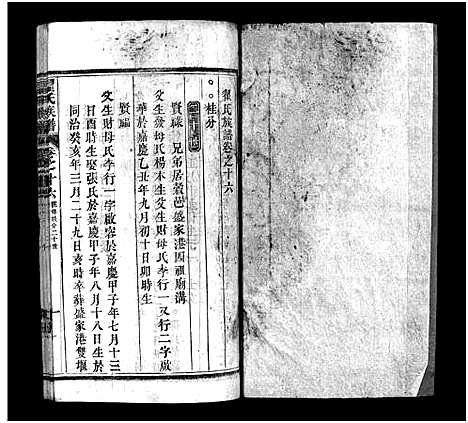 翟氏族譜卷之十六
桂分
賢祿 兄弟居穀邑盛家港四祖廟溝
父生發母氏楊木生父生財母氏李行一又行二字啟
華於嘉慶乙丑年九月初十日卯時生
賢福
父生財母氏李行一字啟容於嘉慶甲子年七月十三
日酉時生娶張氏於嘉慶甲子年八月十八日生於
同治癸亥年三月二十九日亥時卒葬盛家港雙堰
氏族譜